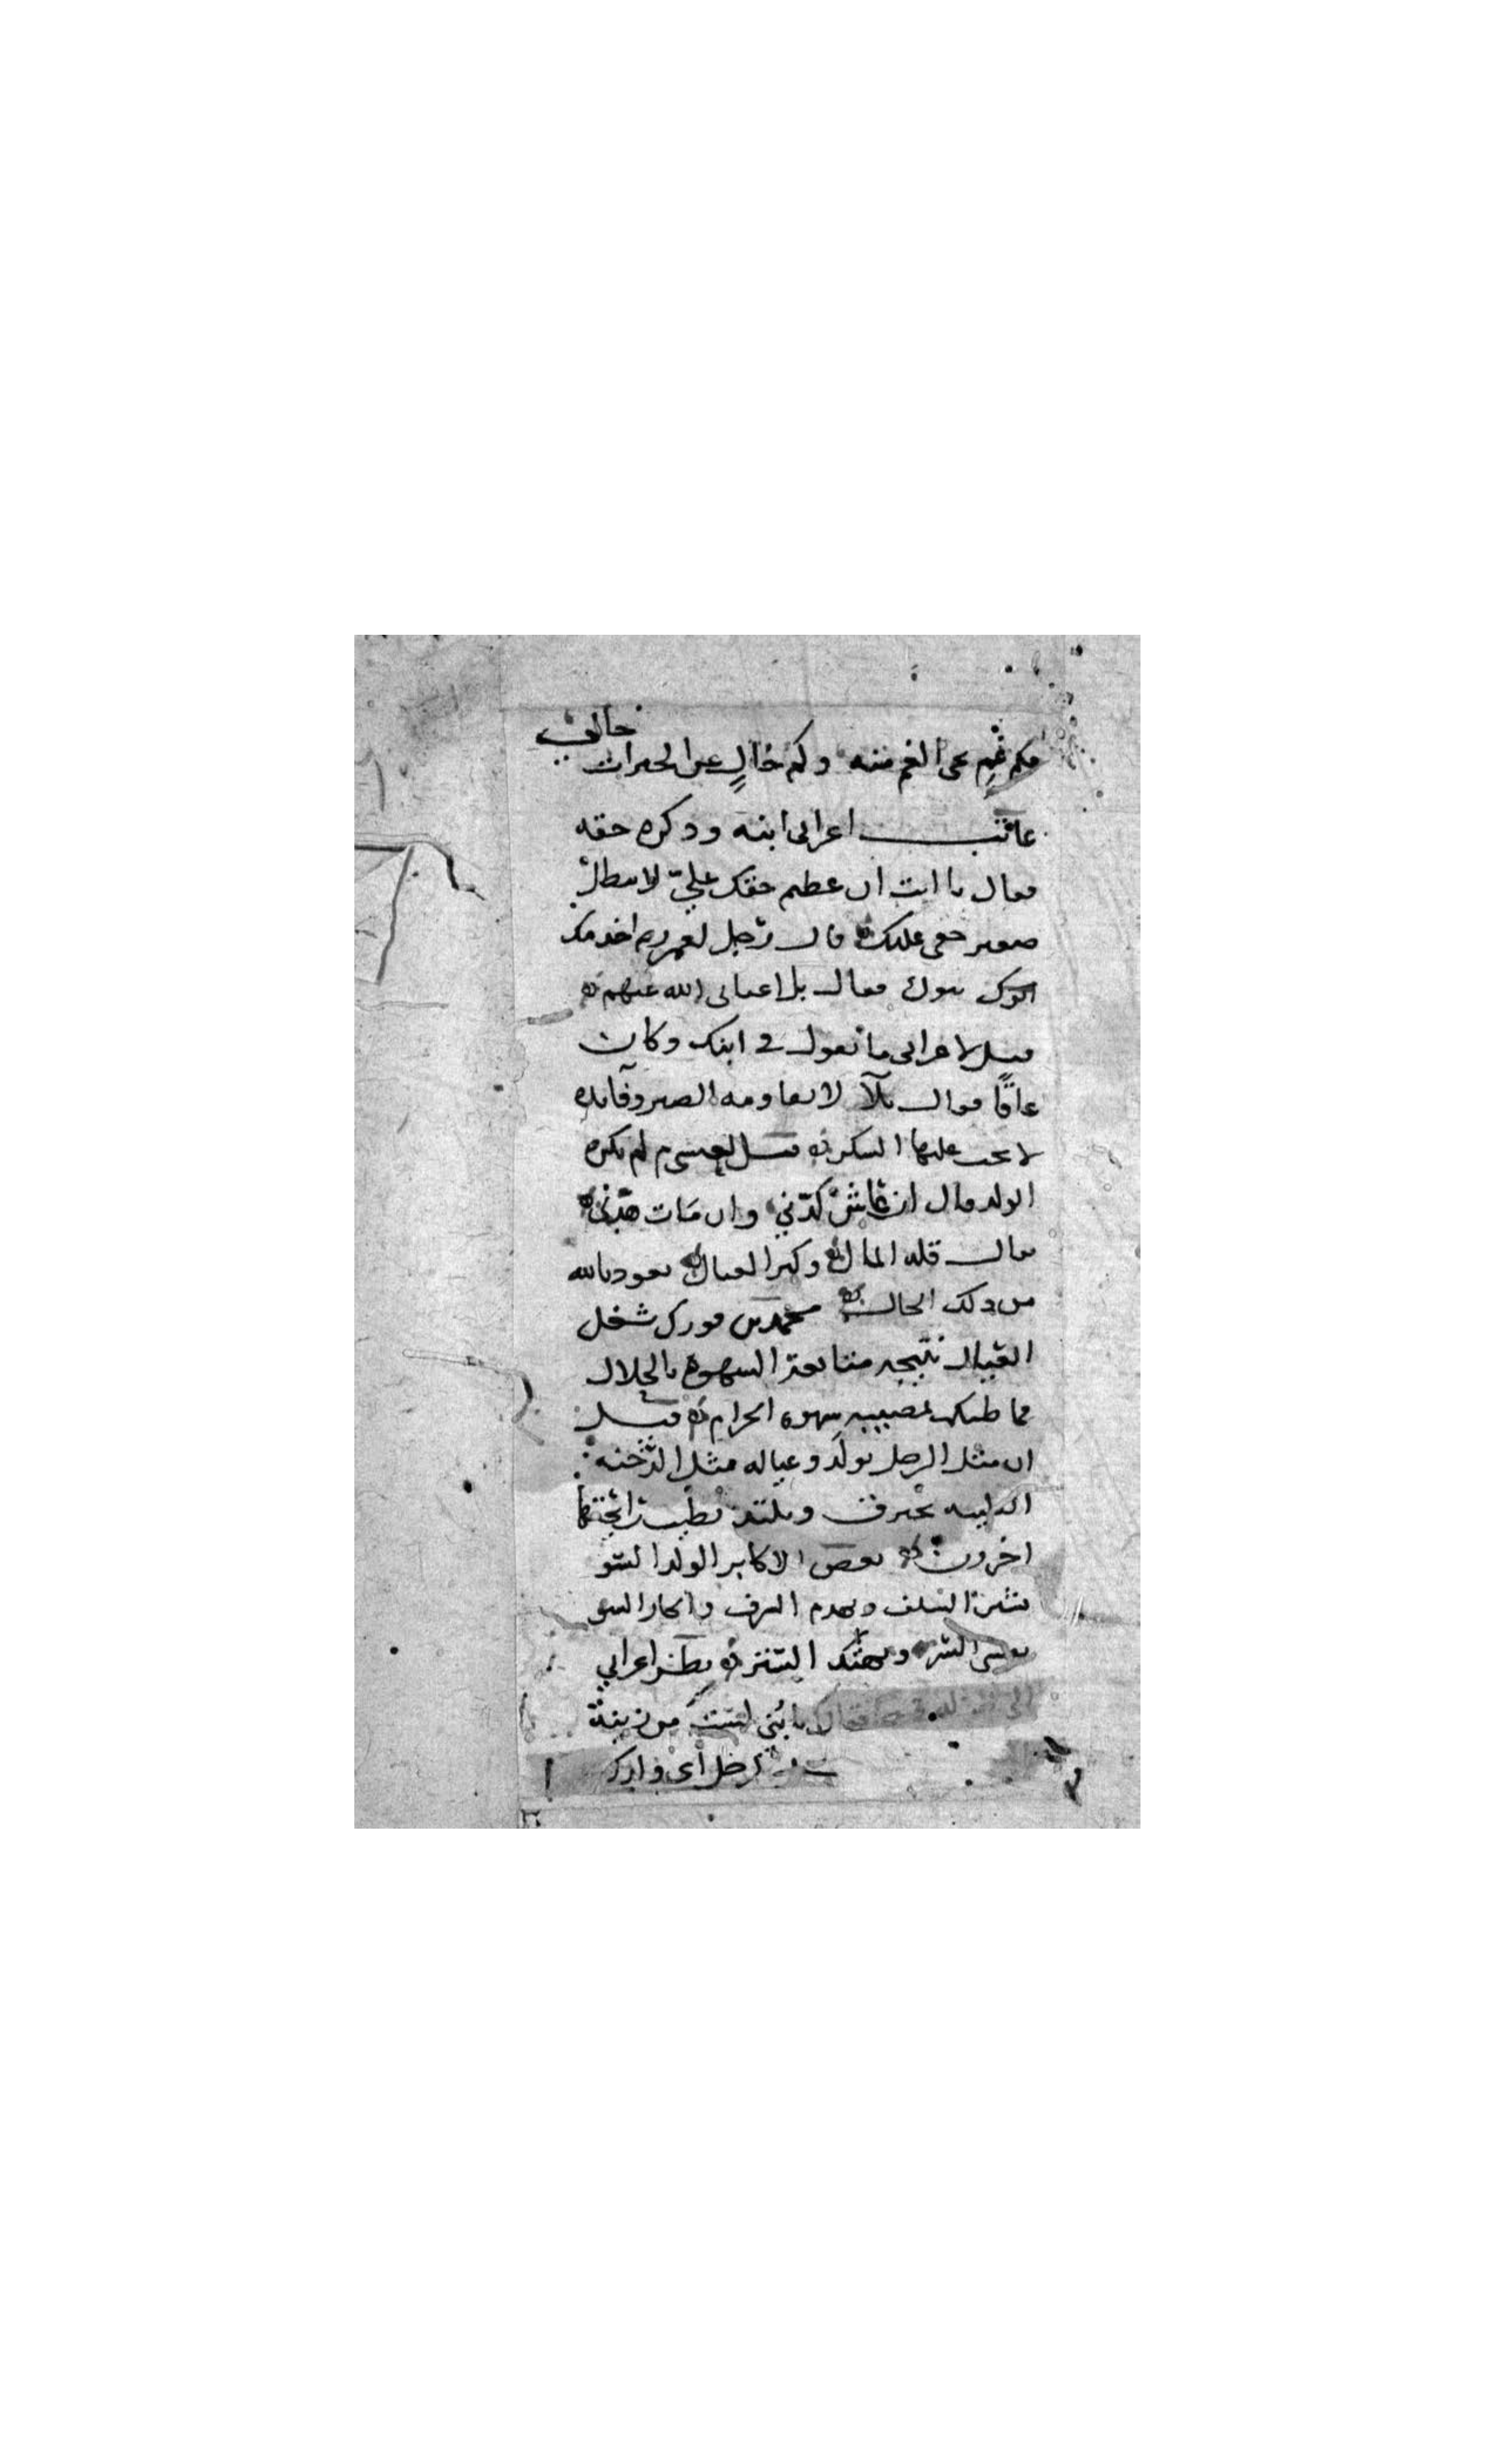 فكم عم يجى الغم منه وكم خال عن الخيرات خالي
عاتب اعرابي ابنه وذكره حقه
فقال يا ابت ان عظيم حقك علي لا يبطل
صغير حقي عليك قال رجل لعمر رض اخدمك
بنوك فقال بل اغناني الله عنهم
قيل لاعرابي ما تقول في ابنك وكان
عاقا فقال بلآ لا يقاومه الصبر وفآئدة
لا يجب عليها الشكر قيل لعيسى م لم تكره
الولد فقال ان عاش كدني وان مات هدني
يقال قلة المال وكثرة العيال نعوذ بالله
من ذلك الحال محمد بن فورك شغل
العيال نتيجة متابعة الشهوة بالحلال
فما ظنك بمصيبة شهوة الحرام قيل
ان مثل الرجل بولده وعياله مثل الدخنة
الطيبة تحترق ويلتذ بطيب رائحتها
اخرون بعض الاكابر الولد السو
يشين السلف ويهدم الشرف والجار السو
يفشي السر ويهتك الستر نظر اعرابي
الى فقال يا بني لست من زينة